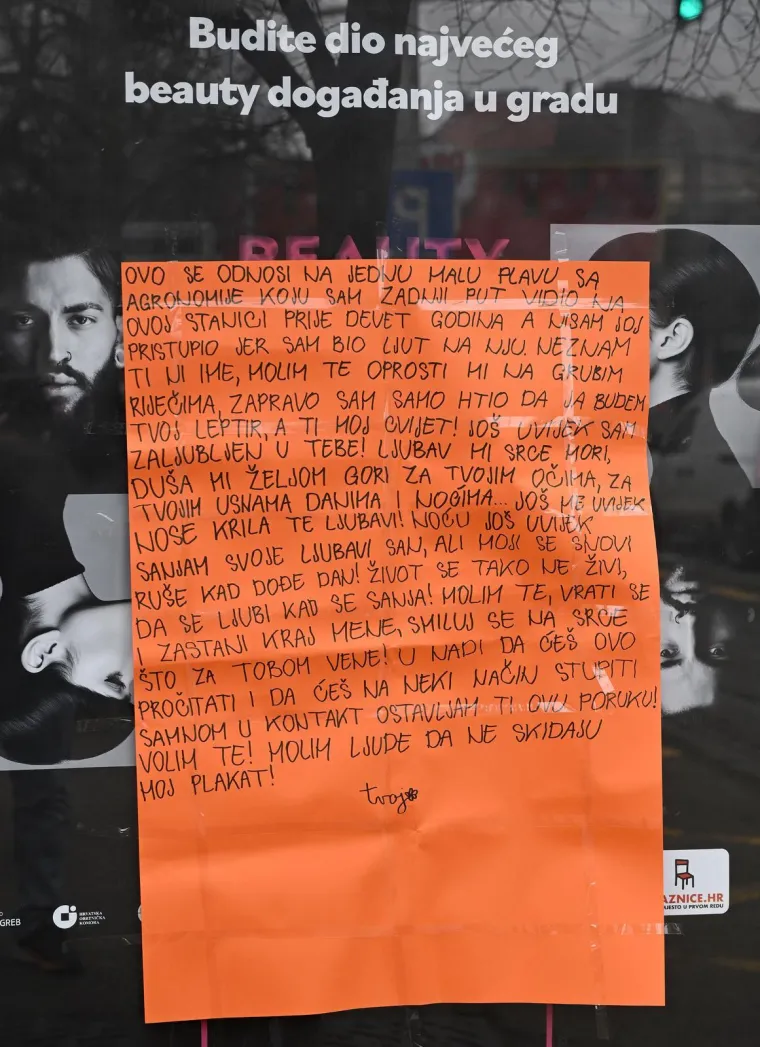 Budite dio najvećeg
beauty događanja u gradu
BEAUTY
OVO SE ODNOSI NA JEDNU MALU PLAVU SA
AGRONOMIJE KOJU SAM ZADNJI PUT VIDIO NA
OVOJ STANICI PRIJE DEVET GODINA A NISAM JOJ
PRISTUPIO JER SAM BIO LJUT NA NJU. NEZNAM
TI NI IME, MOLIM TE OPROSTI MI NA GRUBIM
RIJEČIMA, ZAPRAVO SAM SAMO HTIO DA JA BUDEM
TVOJ LEPTIR, A TI MOJ CVIJET! JOŠ UVIJEK SAM
ZALJUBLJEN U TEBE! LJUBAV MI SRCE MORI,
DUŠA MI ŽELJOM GORI ZA TVOJIM OČIMA, ZA
TVOJIM USNAMA DANIMA I NOĆIMA... JOŠ ME UVIJEK
NOSE KRILA TE LJUBAVI! NOĆU JOŠ UVIJEK
SANJAM SVOJE LJUBAVI SAN, ALI MOJI SE SNOVI
RUŠE KAD DOĐE DAN! ŽIVOT SE TAKO NE ŽIVI,
DA SE LJUBI KAD SE SANJA! MOLIM TE, VRATI SE
I ZASTANI KRAJ MENE, SMILUJ SE NA SRCE
ŠTO ZA TOBOM VENE! U NADI DA ĆEŠ OVO
PROČITATI I DA ĆEŠ NA NEKI NAČIN STUPITI
SAMNOM U KONTAKT OSTAVLJAM TI OVU PORUKU!
VOLIM TE! MOLIM LJUDE DA NE SKIDAJU
MOJ PLAKAT!
tvoj
GREB
HRVATSKA
OBRTNIČKA
KOMORA
AZNICE.HR
MJESTO U PRVOM REDU